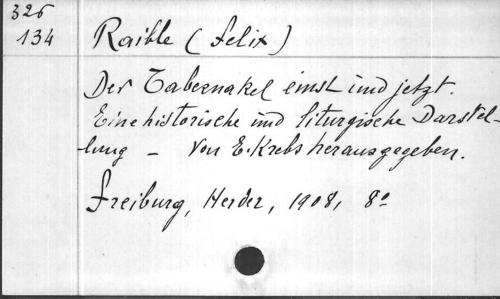 326
134
Raible (Felix)
Der Tabernakel einst und jetzt.
Eine historische und liturgische Darstel-
lung - Von E. Krebs herausgegeben.
Freiburg, Herder, 1908, 8º